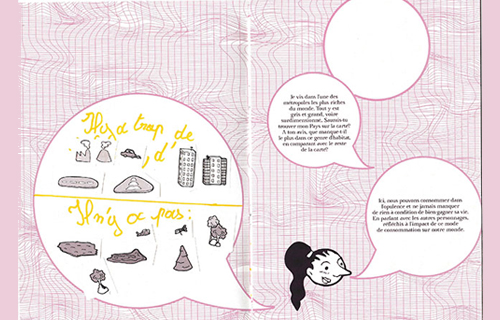 Il y a trop de
, d'
Il n'y a pas :
Je vis dans l'une des
métropoles les plus riches
du monde. Tout y est
gris et grand, voire
surdimensionné. Saurais-tu
trouver mon Pays sur la carte?
A ton avis, que manque-t-il
le plus dans ce genre d'habitat,
en comparaison avec le reste
de la carte?
Ici, nous pouvons consommer dans
l'opulence et ne jamais manquer
de rien à condition de bien gagner sa vie.
En parlant avec les autres personnages,
réfléchis à l'impact de ce mode
de consommation sur notre monde.